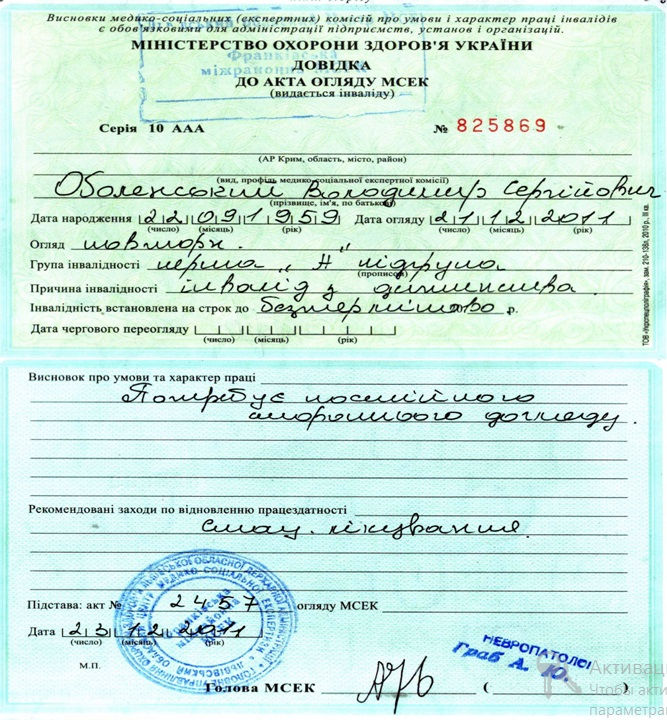 Висновки медико-соціальних (експертних) комісій про умови і характер праці інвалідів
є обов'язковими для адміністрації підприємств, установ і організацій.
МІНІСТЕРСТВО ОХОРОНИ ЗДОРОВ'Я УКРАЇНИ
Франківська
міжрайонна МСЕК
ДОВІДКА
ДО АКТА ОГЛЯДУ МСЕК
(видається інваліду)
Серія 10 ААА № 825869
(АР Крим, область, місто, район)
(вид, профіль медико-соціальної експертної комісії)
Оболенський Володимир Сергійович
(прізвище, ім'я, по батькові)
Дата народження 22 09 1959 Дата огляду 21 12 2011
(число) (місяць) (рік) (число) (місяць) (рік)
Огляд повторн.
Група інвалідності перша "А" підгрупа
(прописом)
Причина інвалідності інвалід з дитинства
Інвалідність встановлена на строк до безтерміново р.
Дата чергового переогляду
(число) (місяць) (рік)
Висновок про умови та характер праці
Потребує постійного
стороннього догляду.
Рекомендовані заходи по відновленню працездатності
стац. лікування
Підстава: акт № 2457 огляду МСЕК
Дата 23 12 2011
(число) (місяць) (рік)
М.П.
Голова МСЕК ( )
НЕВРОПАТОЛОГ
Граб А. Ю.
Активац
Чтобы акти
параметра